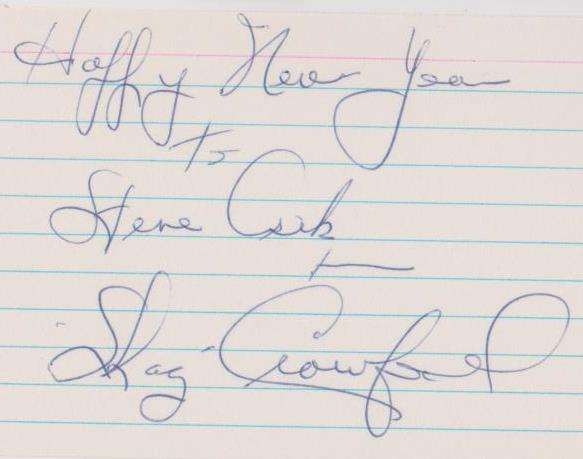 Happy New Year
To
Steve Csik
"Shag" Crawford